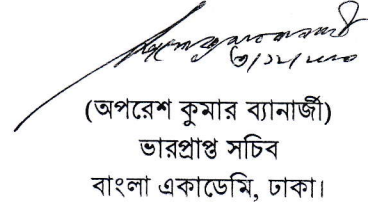 ৩/১২/২০২০
(অপরেশ কুমার ব্যানার্জী)
ভারপ্রাপ্ত সচিব
বাংলা একাডেমি, ঢাকা।